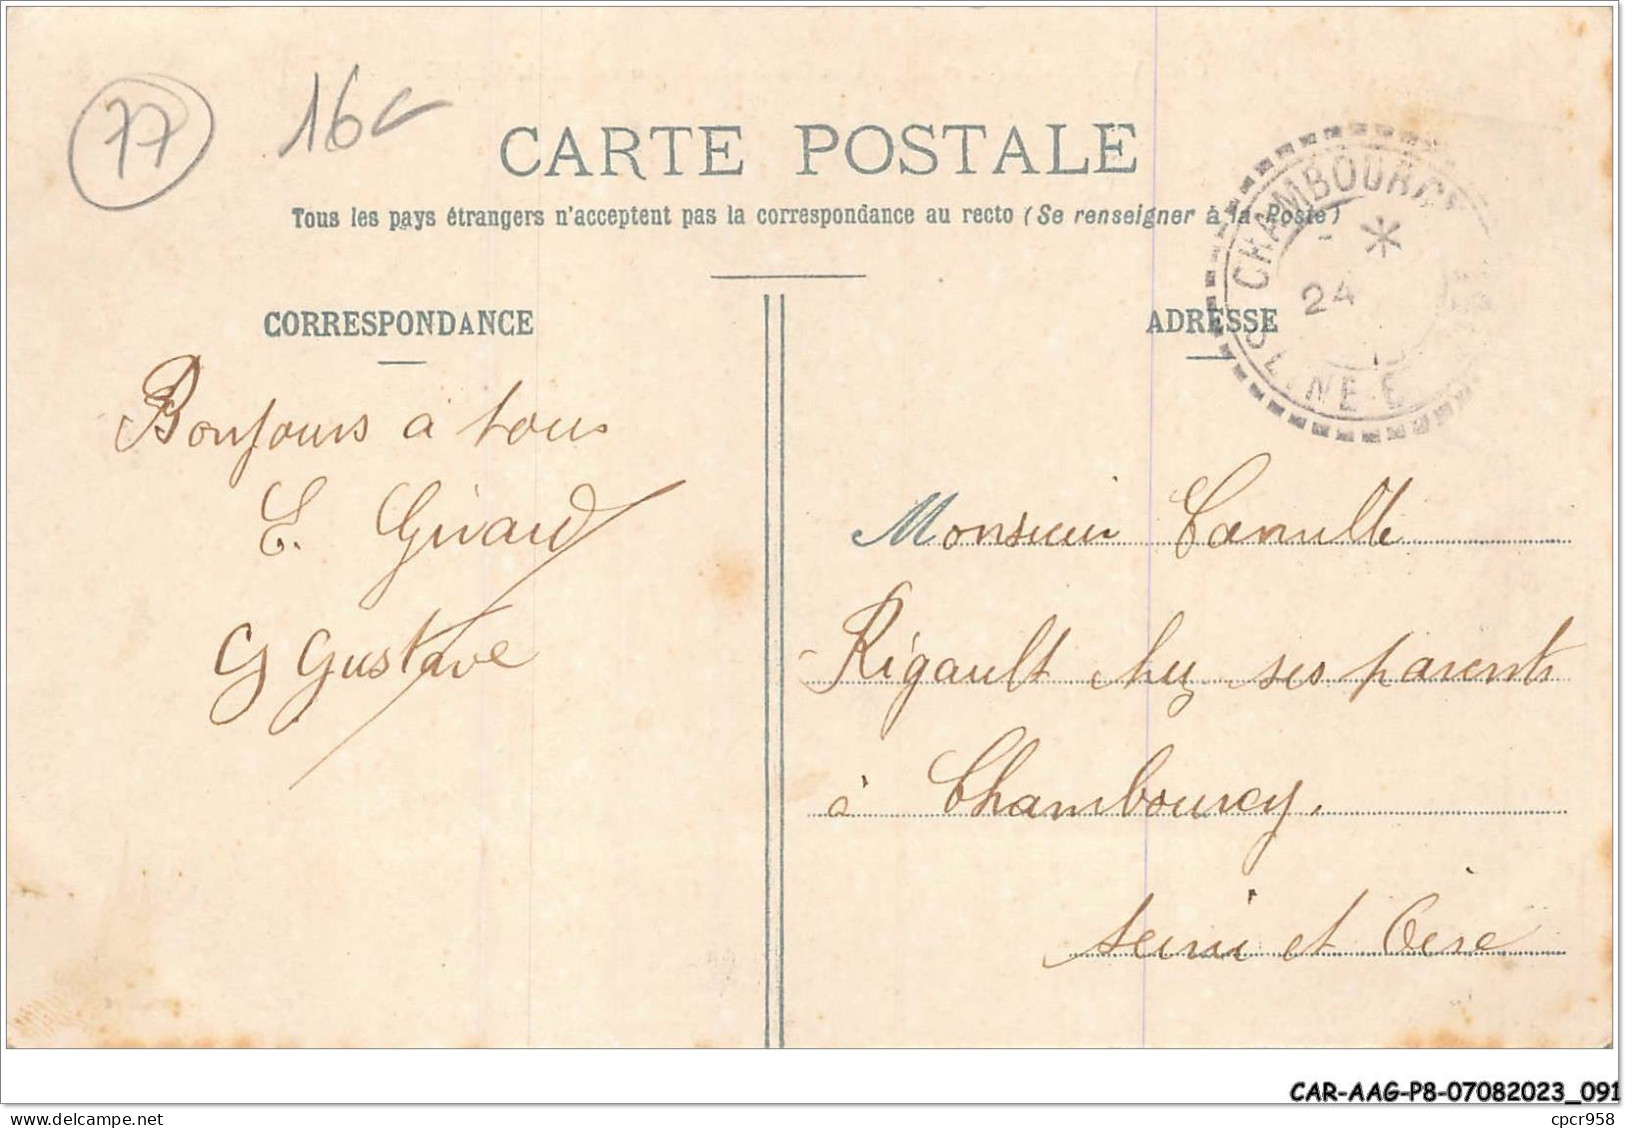 77
16€
CARTE POSTALE
Tous les pays étrangers n'acceptent pas la correspondance au recto (Se renseigner à la Poste)
CHAMBOURCY
*
24
SEINE-E
CORRESPONDANCE
ADRESSE
Bonjours à tous
E. Girard
G Gustave
Monsieur Camille
Rigault chez ses parents
à Chambourcy.
Seine et Oise
CAR-AAG-P8-07082023_091
cpcr958